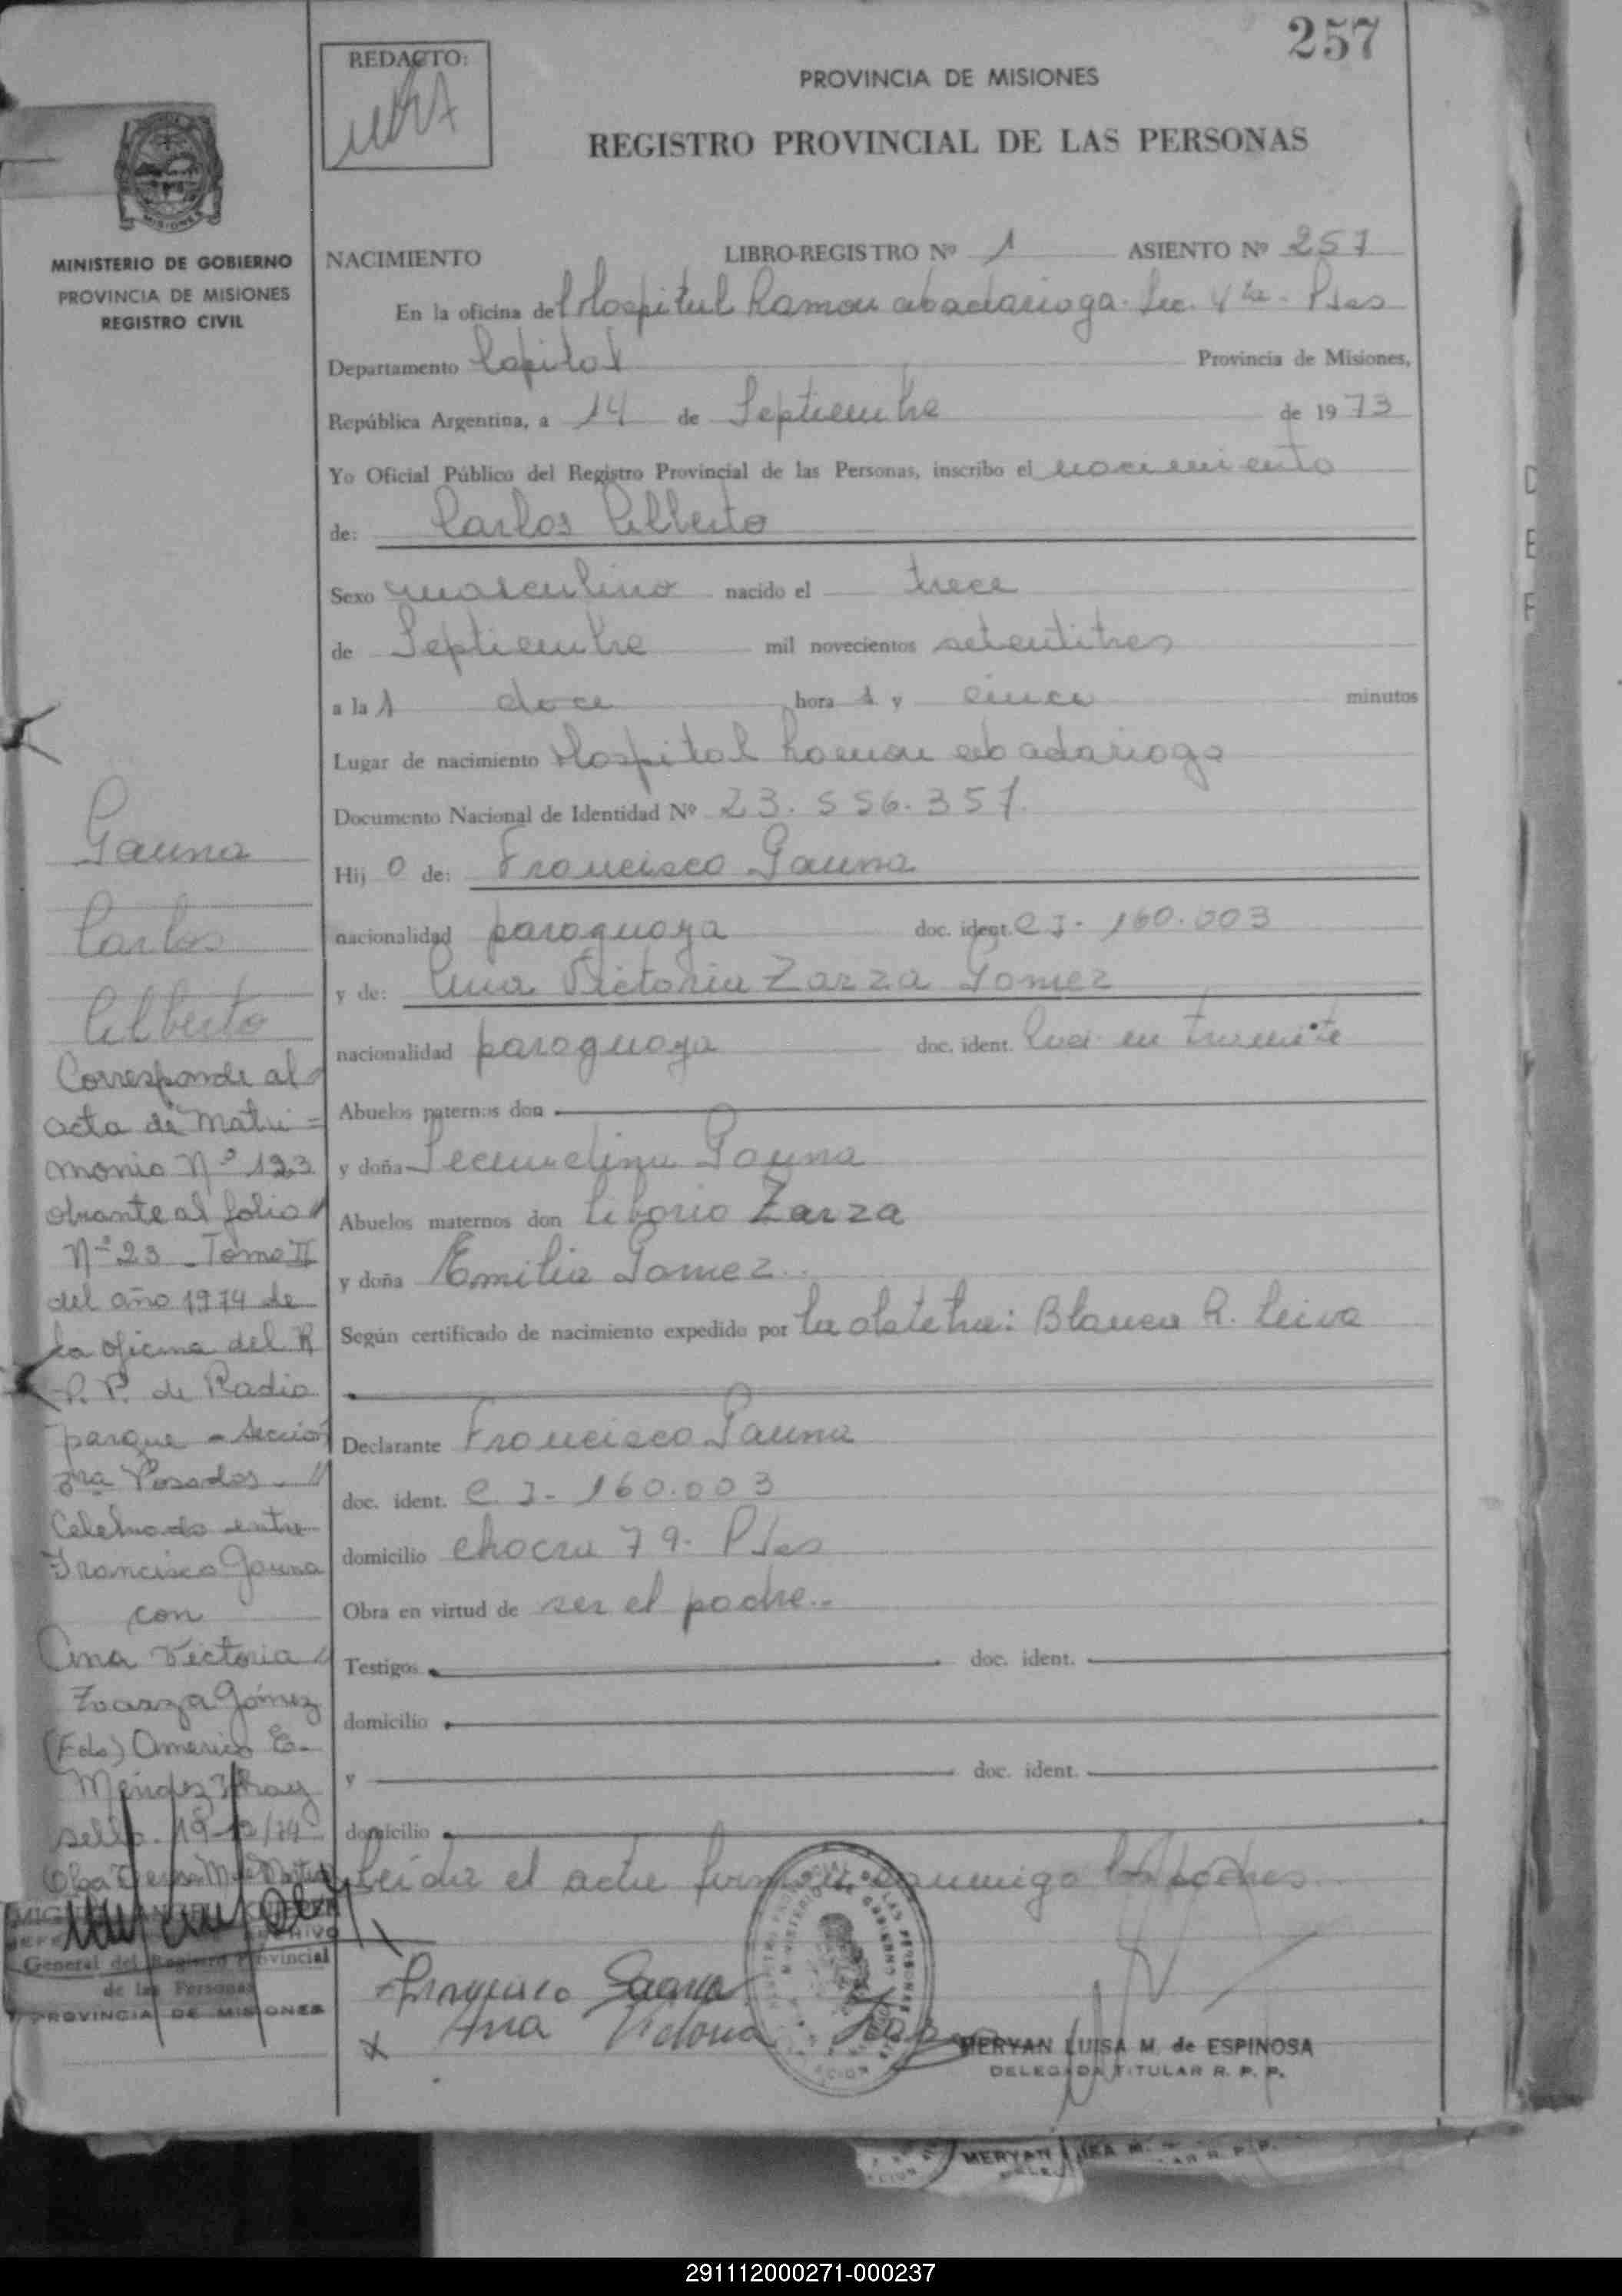 257
REDACTO:
PROVINCIA DE MISIONES
REGISTRO PROVINCIAL DE LAS PERSONAS
MISIONES
MINISTERIO DE GOBIERNO
PROVINCIA DE MISIONES
REGISTRO CIVIL
NACIMIENTO LIBRO-REGISTRO Nº 1 ASIENTO Nº 257
En la oficina del Hospital Ramon abadarioga. Sec. 4ta - Pdas
Departamento Capital Provincia de Misiones,
República Argentina, a 14 de Septiembre de 1973
Yo Oficial Público del Registro Provincial de las Personas, inscribo el nacimiento
de: Carlos Alberto
Sexo masculino nacido el trece
de Septiembre mil novecientos setentitres
a las doce hora s y cinco minutos
Lugar de nacimiento Hospital Ramon abadarioga
Documento Nacional de Identidad Nº 23.556.357
Hij o de: Francisco Gauna
nacionalidad paraguaya doc. ident. C I - 160.003
y de: Ana Victoria Zarza Gomez
nacionalidad paraguaya doc. ident. en tramite
Abuelos paternos don
y doña Secundina Gauna
Abuelos maternos don Liborio Zarza
y doña Emilia Gomez
Según certificado de nacimiento expedido por la obstetra: Blanca R. Leiva
Declarante Francisco Gauna
doc. ident. C. I - 160.003
domicilio chacra 79 - Pdas
Obra en virtud de ser el padre..
Testigos doc. ident.
domicilio
y doc. ident.
domicilio
Leida el acta firman conmigo los padres
Francisco Gauna
x Ana Victoria Zarza
MERYAN LUISA M. de ESPINOSA
DELEGADA TITULAR R. P. P.
Gauna
Carlos
Alberto
Corresponde al
acta de Matri=
monio Nº 123
obrante al folio
Nº 23 - Tomo II
del año 1974 de
la oficina del R
P. P. de Radio
parque - sección
3ra Posadas.
Celebrado entre
Francisco Gauna
con
Ana Victoria
Zarza Gómez
(Fdo) Americo E.
Méndez
sello. 19-12/74
General del Registro Provincial
de las Personas
PROVINCIA DE MISIONES
MERYAN
291112000271-000237